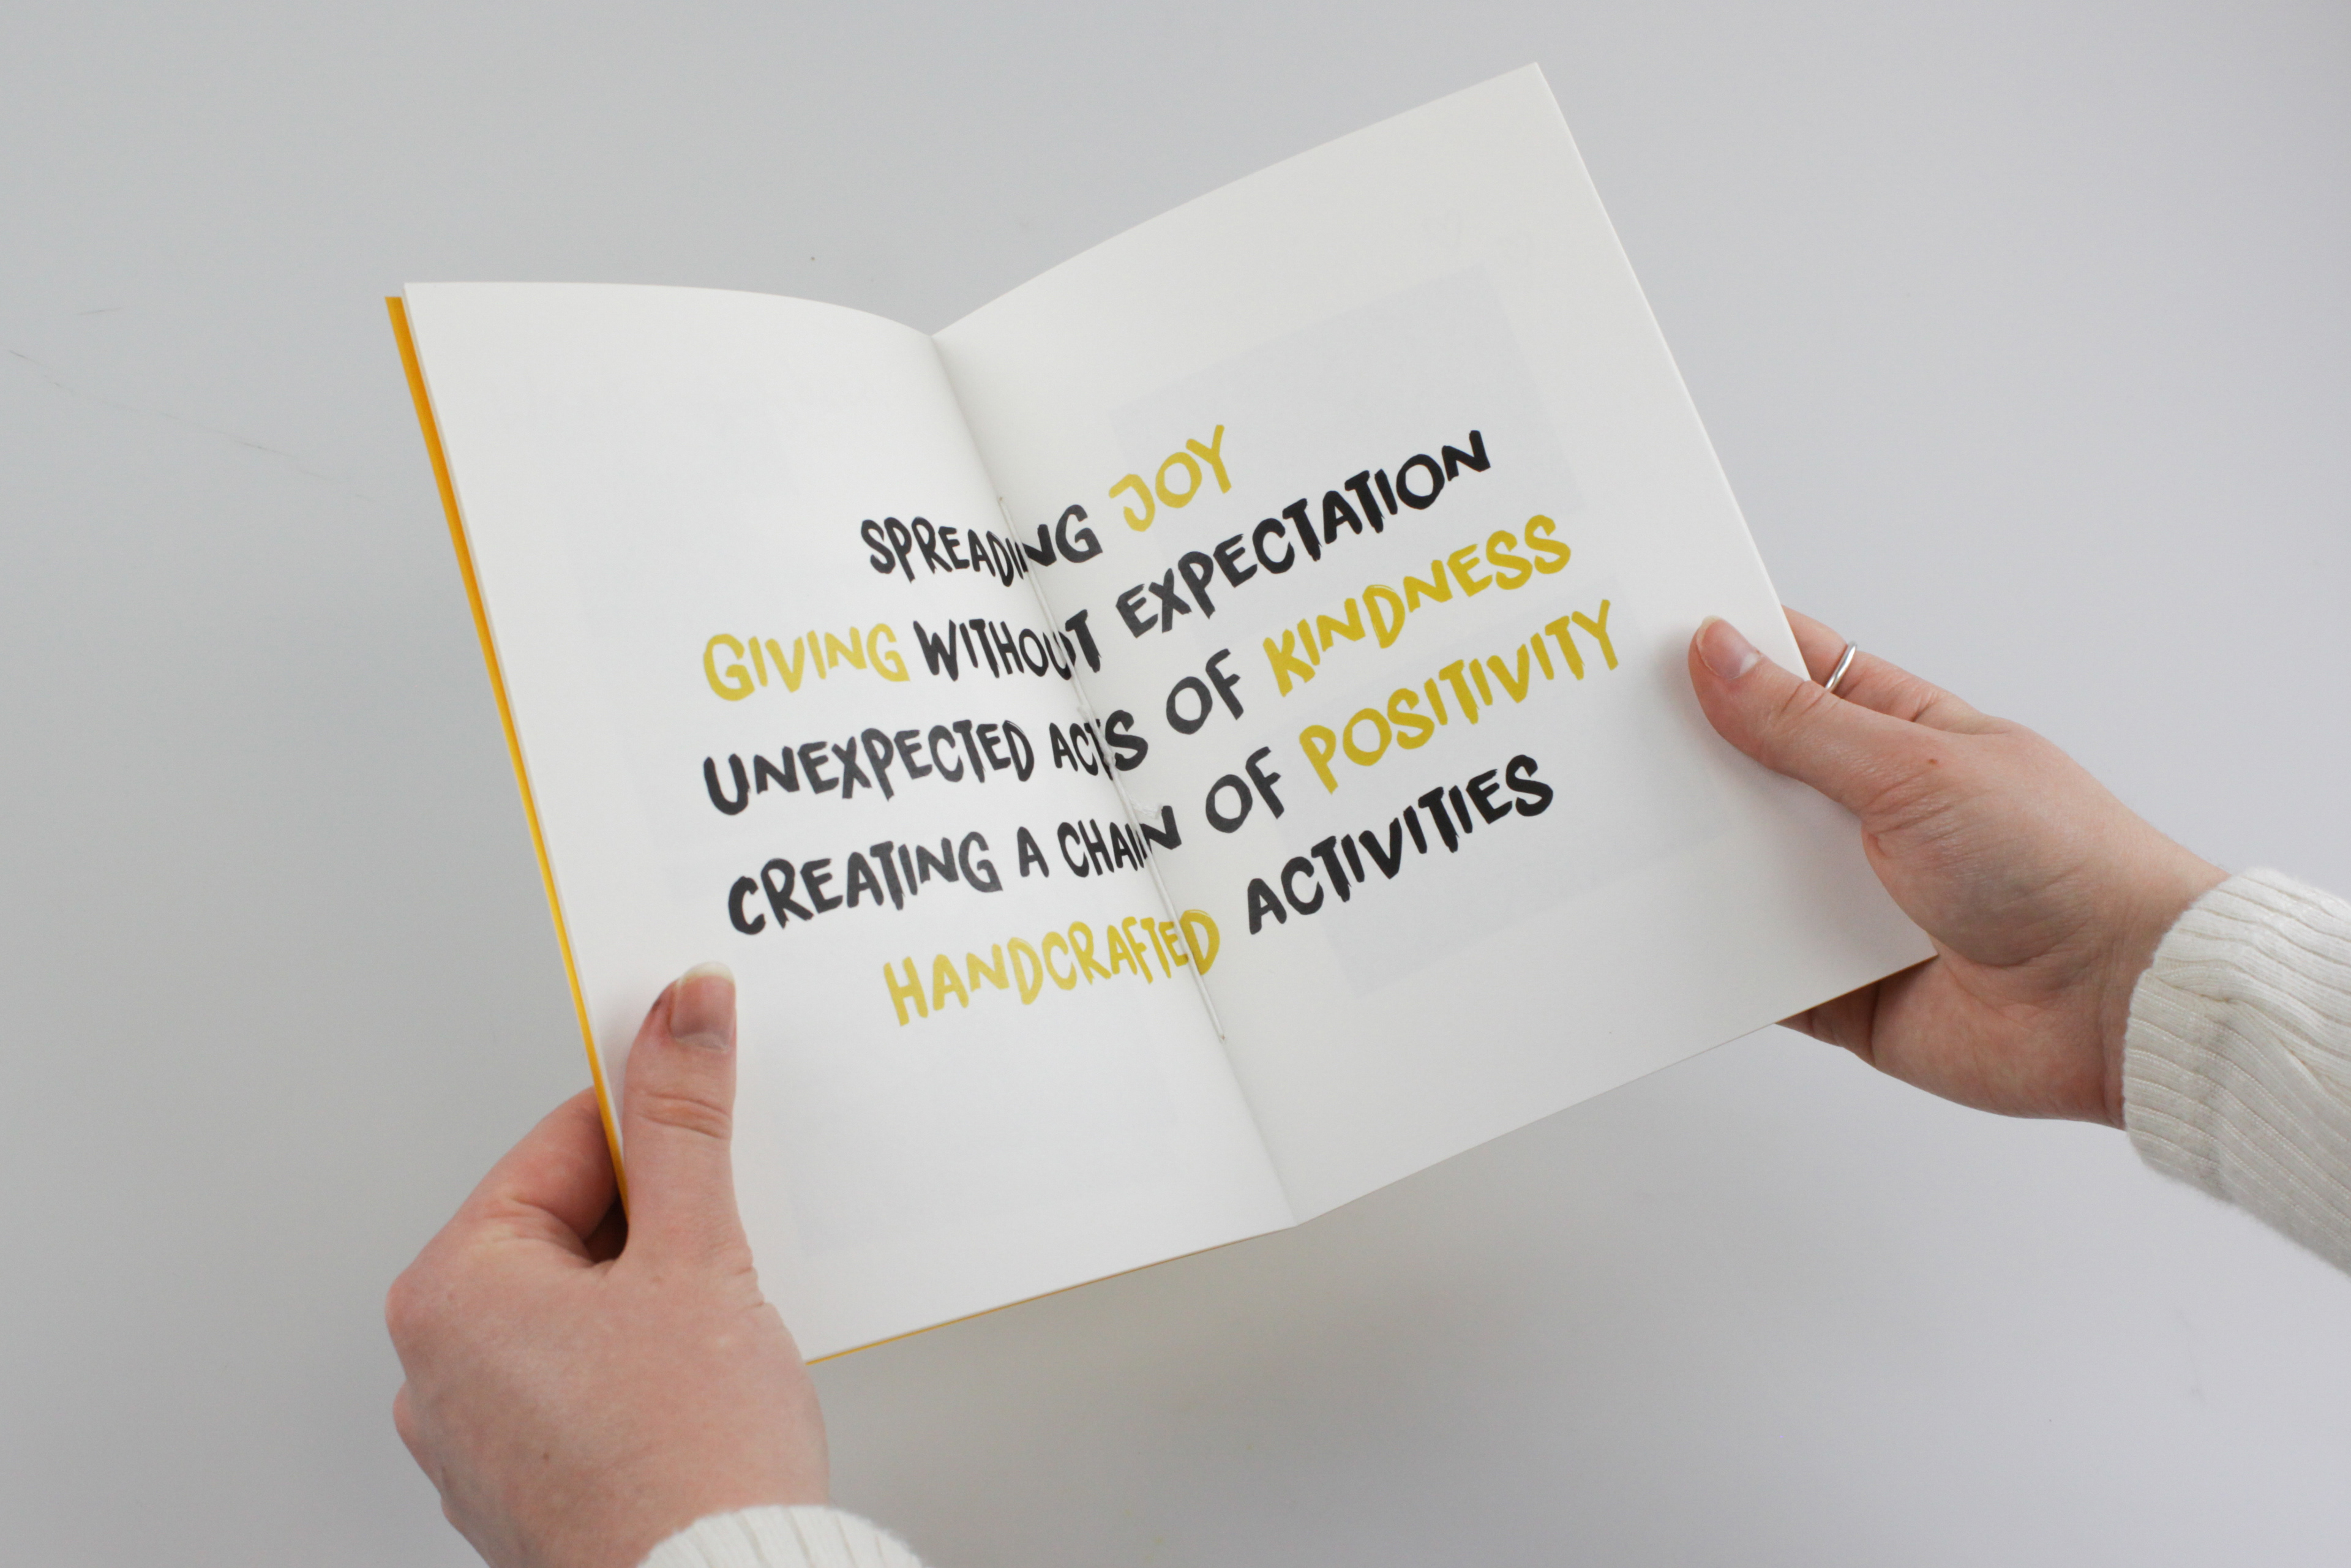 SPREADING JOY
GIVING WITHOUT EXPECTATION
UNEXPECTED ACTS OF KINDNESS
CREATING A CHAIN OF POSITIVITY
HANDCRAFTED ACTIVITIES